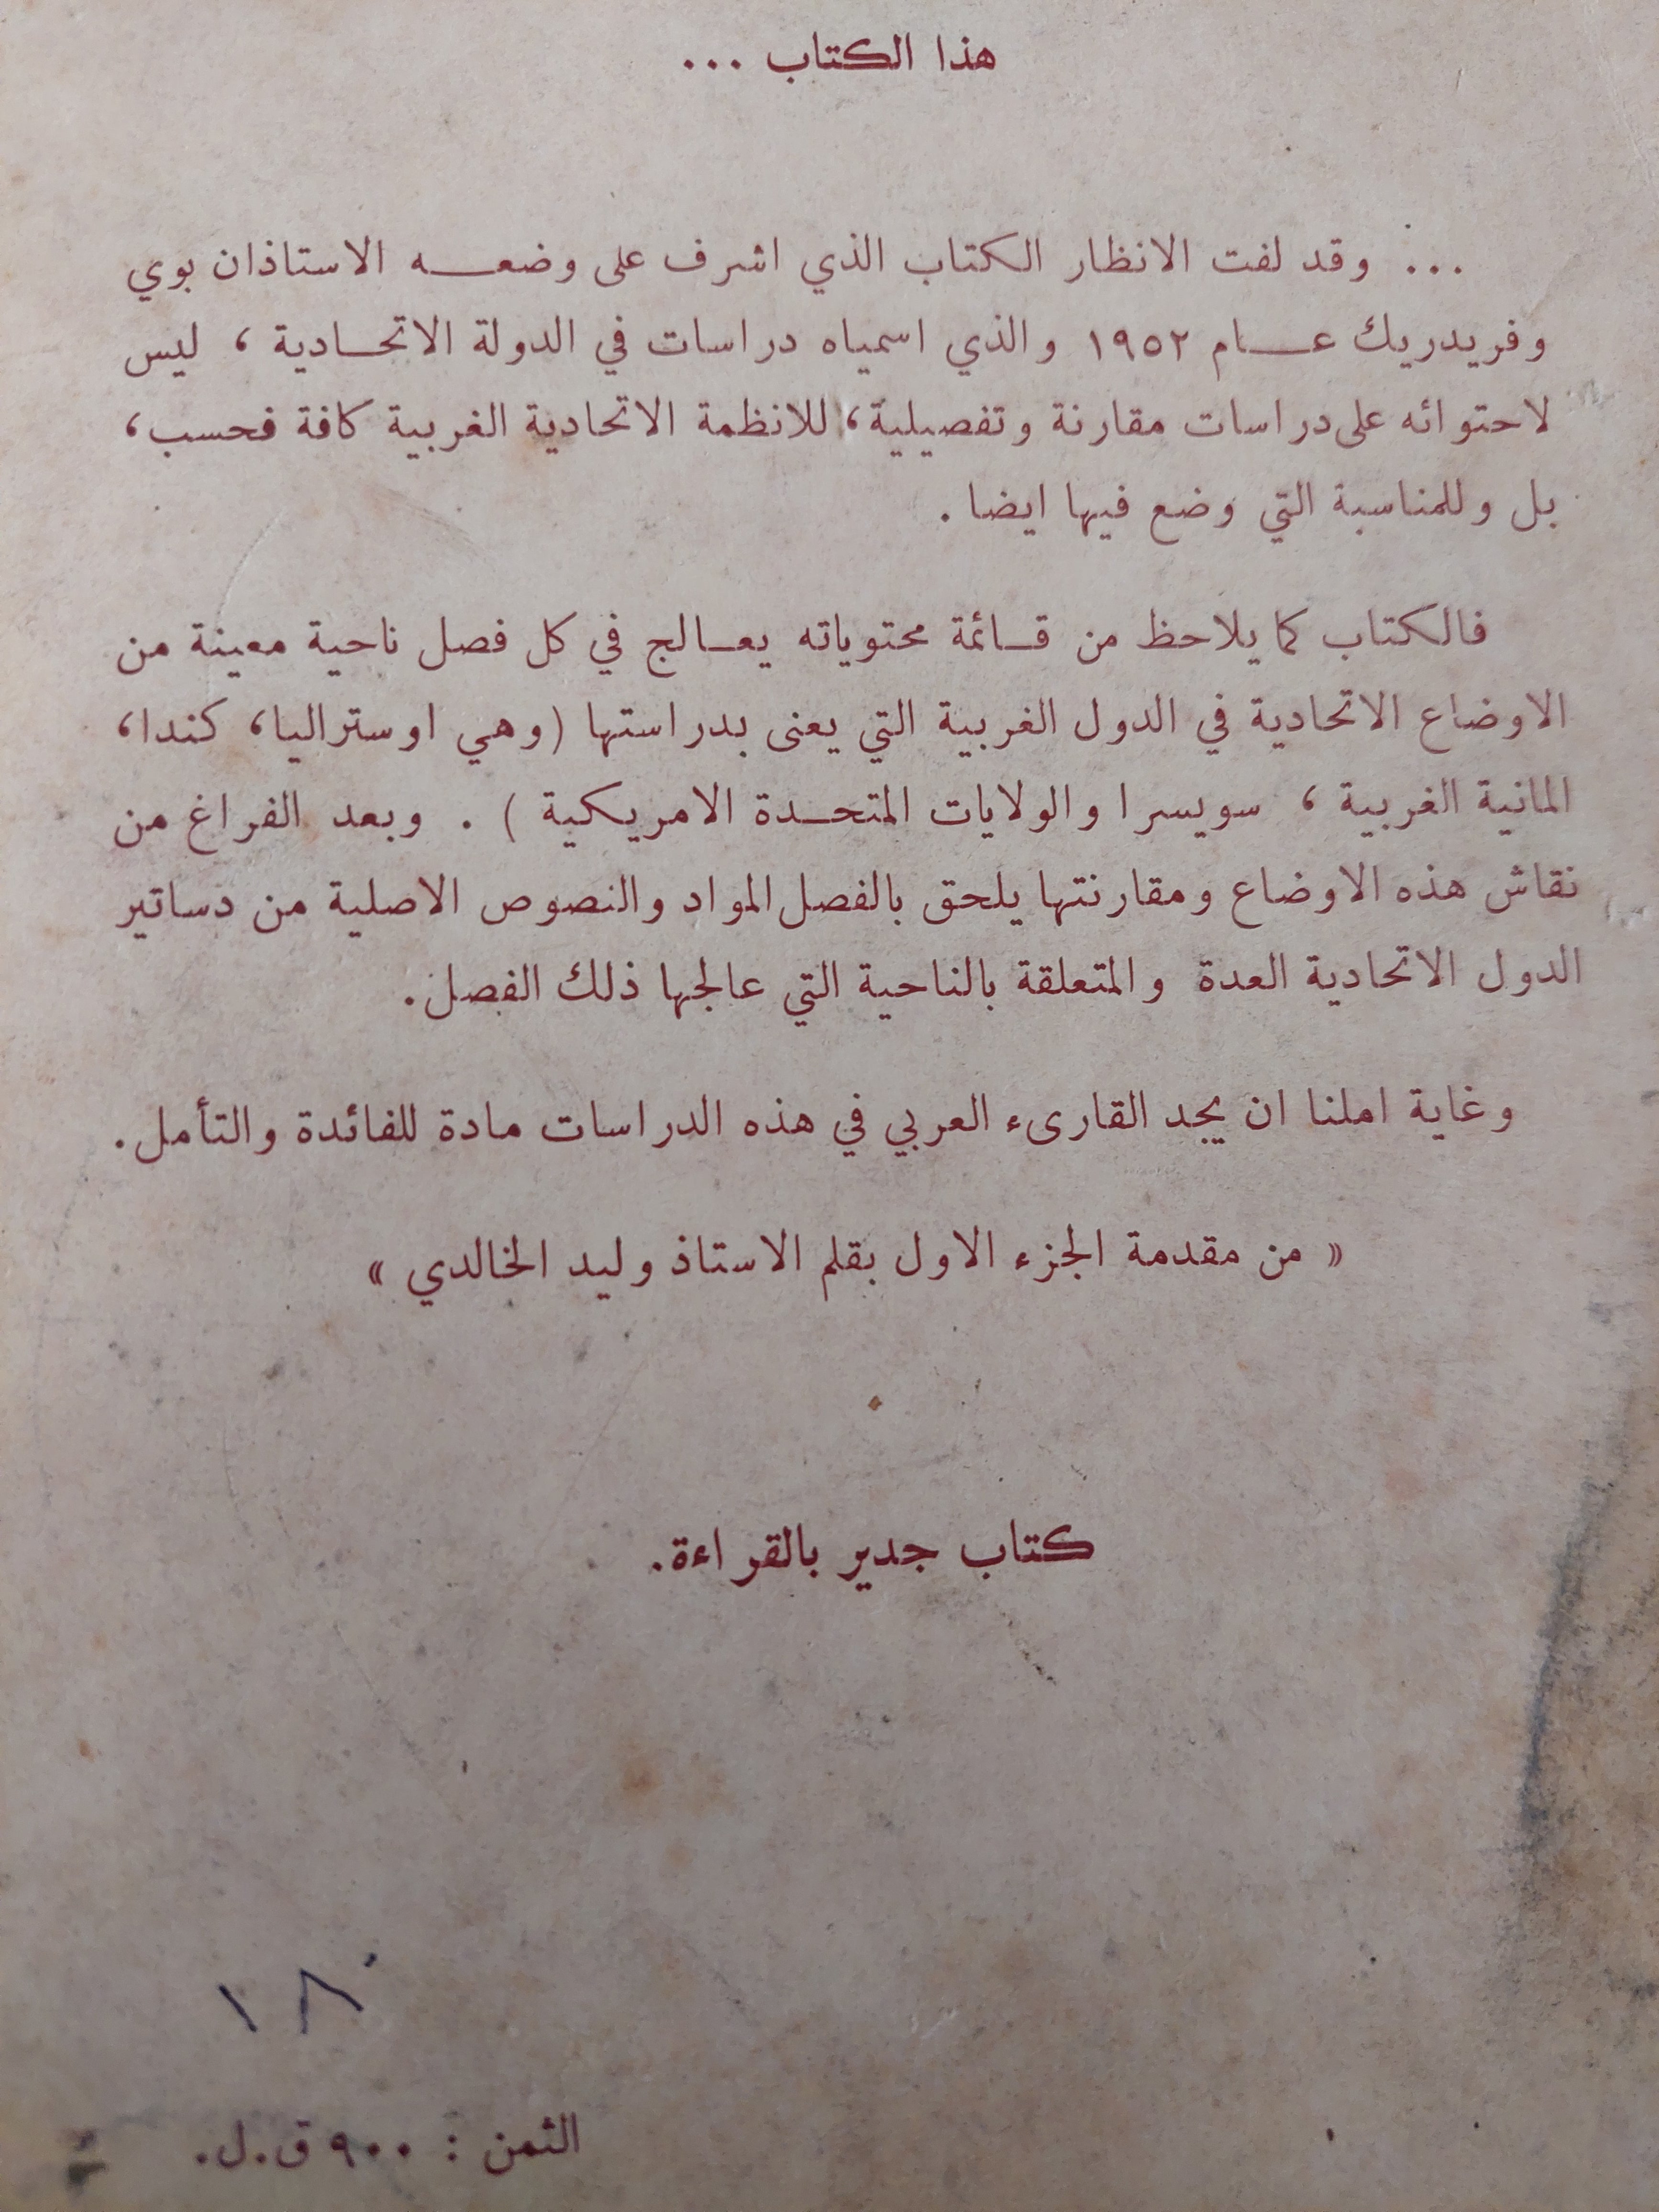 هذا الكتاب ...
... وقد لفت الانظار الكتاب الذي اشرف على وضعه الاستاذان بوي
وفريدريك عام ١٩٥٢ والذي اسمياه دراسات في الدولة الاتحادية ، ليس
لاحتوائه على دراسات مقارنة وتفصيلية، للانظمة الاتحادية الغربية كافة فحسب،
بل وللمناسبة التي وضع فيها ايضا .
فالكتاب كما يلاحظ من قائمة محتوياته يعالج في كل فصل ناحية معينة من
الاوضاع الاتحادية في الدول الغربية التي يعنى بدراستها (وهي اوستراليا، كندا،
المانية الغربية ، سويسرا والولايات المتحدة الامريكية ) . وبعد الفراغ من
نقاش هذه الاوضاع ومقارنتها يلحق بالفصل المواد والنصوص الاصلية من دساتير
الدول الاتحادية العدة والمتعلقة بالناحية التي عالجها ذلك الفصل.
وغاية املنا ان يجد القارىء العربي في هذه الدراسات مادة للفائدة والتأمل.
« من مقدمة الجزء الاول بقلم الاستاذ وليد الخالدي »
كتاب جدير بالقراءة.
١٨٠
الثمن : ٩٠٠ ق.ل.